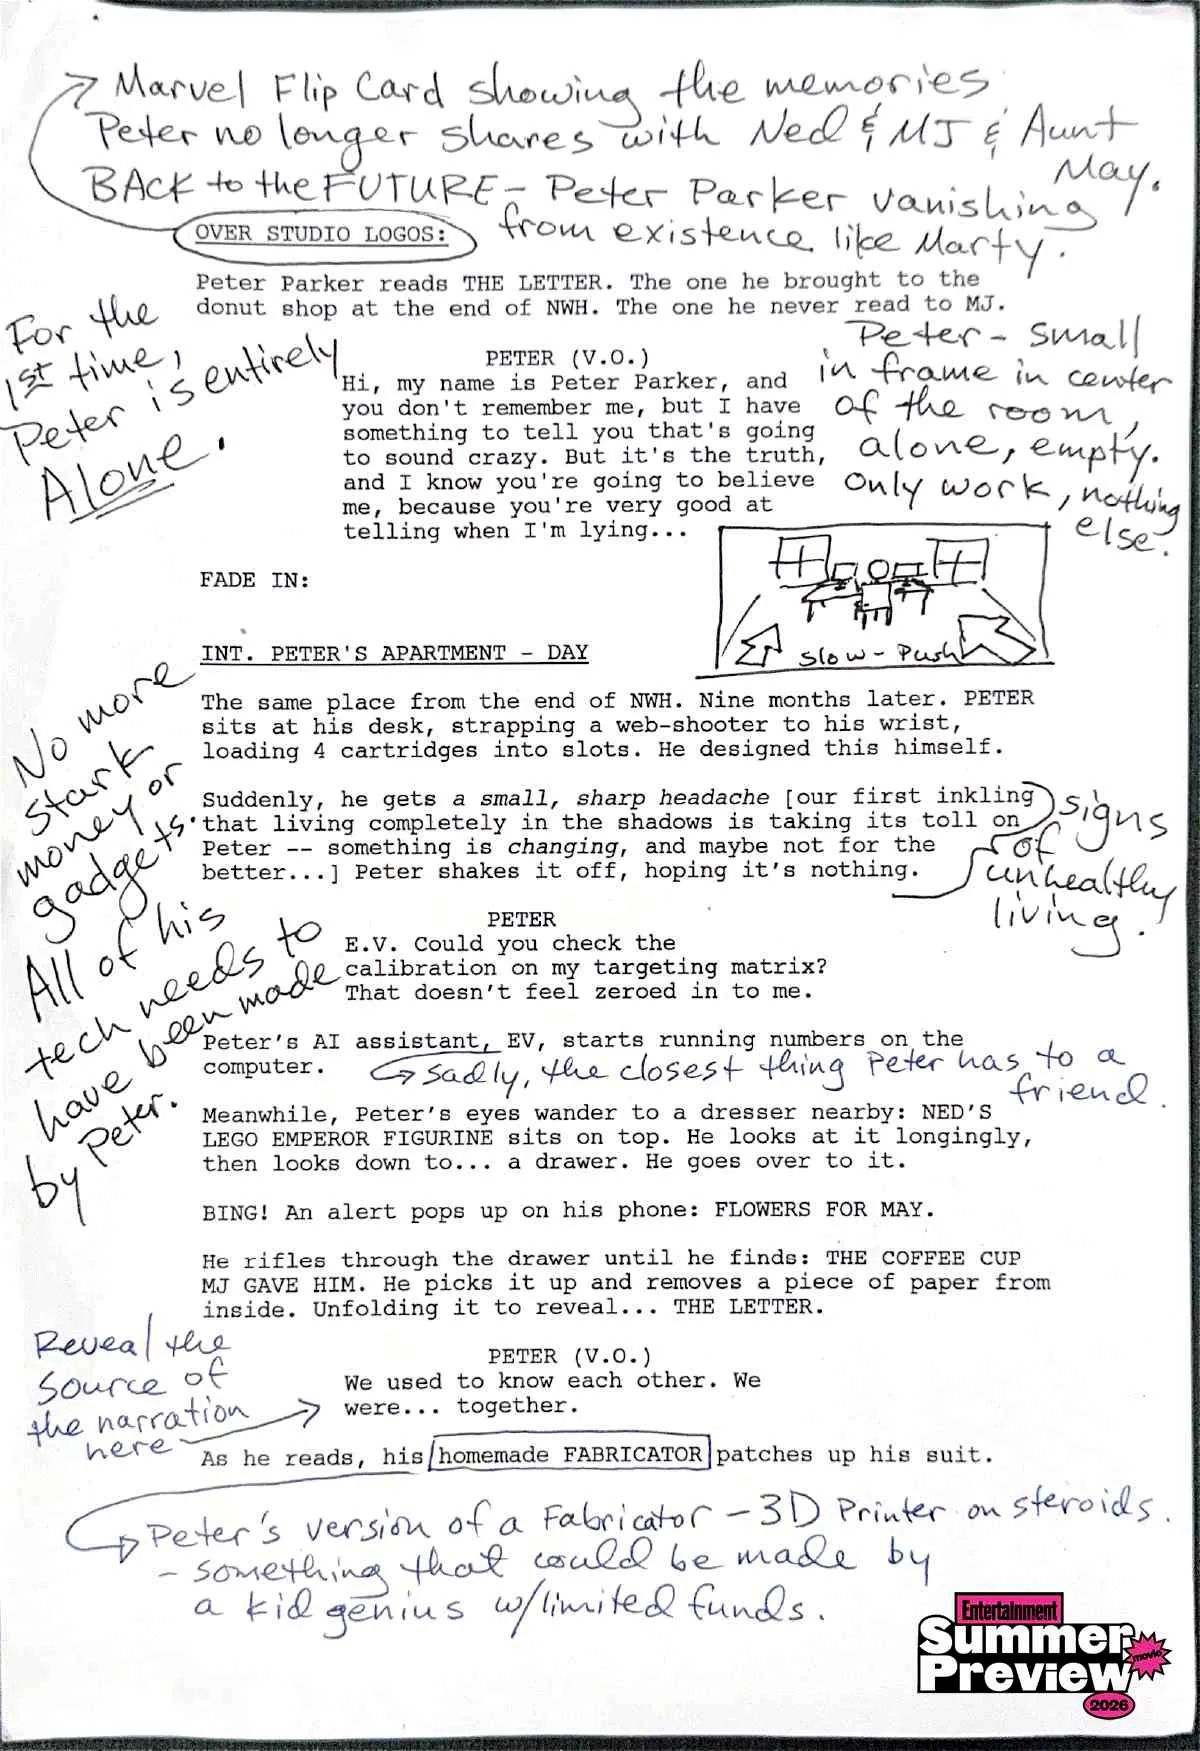 Marvel Flip Card showing the memories
Peter no longer shares with Ned & MJ & Aunt
May.
BACK to the FUTURE - Peter Parker vanishing
from existence like Marty.
OVER STUDIO LOGOS:
Peter Parker reads THE LETTER. The one he brought to the
donut shop at the end of NWH. The one he never read to MJ.
For the
1st time,
Peter is entirely
Alone.
Peter - small
in frame in center
of the room,
alone, empty.
only work, nothing
else.
PETER (V.O.)
Hi, my name is Peter Parker, and
you don't remember me, but I have
something to tell you that's going
to sound crazy. But it's the truth,
and I know you're going to believe
me, because you're very good at
telling when I'm lying...
slow-Push
FADE IN:
INT. PETER'S APARTMENT - DAY
The same place from the end of NWH. Nine months later. PETER
sits at his desk, strapping a web-shooter to his wrist,
loading 4 cartridges into slots. He designed this himself.
No more
stark
money or
gadgets.
All of his
tech needs to
have been made
by Peter.
Suddenly, he gets a small, sharp headache [our first inkling
that living completely in the shadows is taking its toll on
Peter -- something is changing, and maybe not for the
better...] Peter shakes it off, hoping it's nothing.
signs
of
unhealthy
living.
PETER
E.V. Could you check the
calibration on my targeting matrix?
That doesn't feel zeroed in to me.
Peter's AI assistant, EV, starts running numbers on the
computer.
sadly, the closest thing Peter has to a
friend.
Meanwhile, Peter's eyes wander to a dresser nearby: NED'S
LEGO EMPEROR FIGURINE sits on top. He looks at it longingly,
then looks down to... a drawer. He goes over to it.
BING! An alert pops up on his phone: FLOWERS FOR MAY.
He rifles through the drawer until he finds: THE COFFEE CUP
MJ GAVE HIM. He picks it up and removes a piece of paper from
inside. Unfolding it to reveal... THE LETTER.
Reveal the
source of
the narration
here
PETER (V.O.)
We used to know each other. We
were... together.
As he reads, his homemade FABRICATOR patches up his suit.
Peter's version of a Fabricator - 3D Printer on steroids.
- something that could be made by
a kid genius w/limited funds.
Entertainment
Summer
movie
Preview
2026